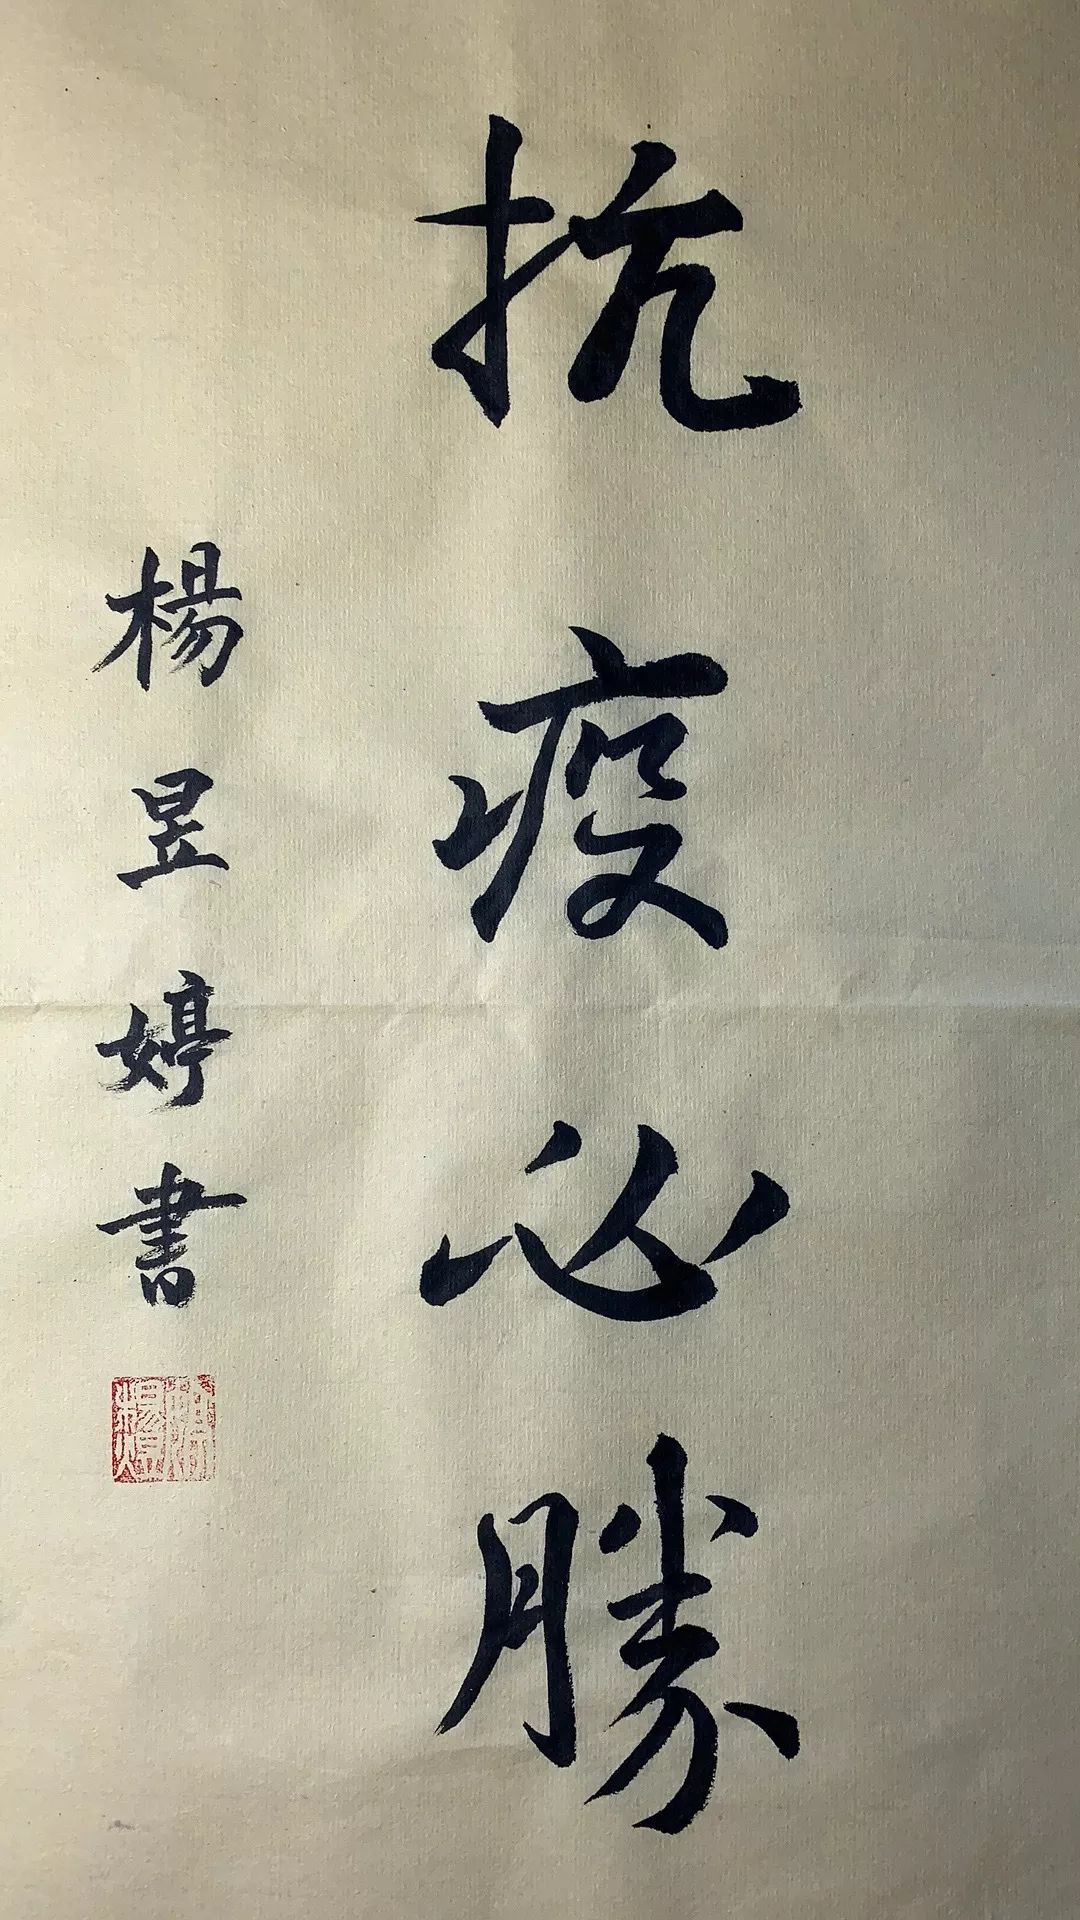 抗疫必勝
楊昱婷書